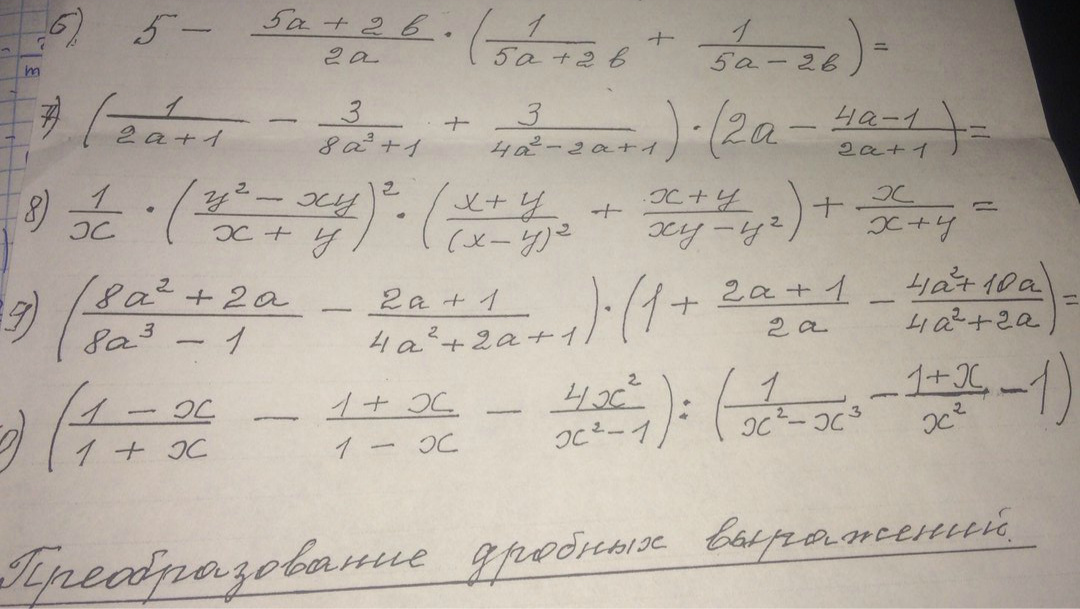 6) 5 - \frac{5a + 2b}{2a} \cdot \left( \frac{1}{5a + 2b} + \frac{1}{5a - 2b} \right) =
7) \left( \frac{1}{2a + 1} - \frac{3}{8a^3 + 1} + \frac{3}{4a^2 - 2a + 1} \right) \cdot \left( 2a - \frac{4a - 1}{2a + 1} \right) =
8) \frac{1}{x} \cdot \left( \frac{y^2 - xy}{x + y} \right)^2 \cdot \left( \frac{x + y}{(x - y)^2} + \frac{x + y}{xy - y^2} \right) + \frac{x}{x + y} =
9) \left( \frac{8a^2 + 2a}{8a^3 - 1} - \frac{2a + 1}{4a^2 + 2a + 1} \right) \cdot \left( 1 + \frac{2a + 1}{2a} - \frac{4a^2 + 10a}{4a^2 + 2a} \right) =
0) \left( \frac{1 - x}{1 + x} - \frac{1 + x}{1 - x} - \frac{4x^2}{x^2 - 1} \right) : \left( \frac{1}{x^2 - x^3} - \frac{1 + x}{x^2} - 1 \right)
Преобразование дробных выражений.